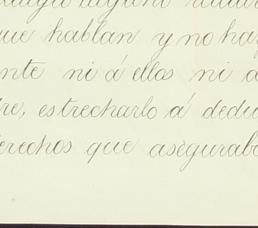 que hablan y no hay
nte ni á ellos ni a
re, estrecharlo á dedu
erechos que asegurab